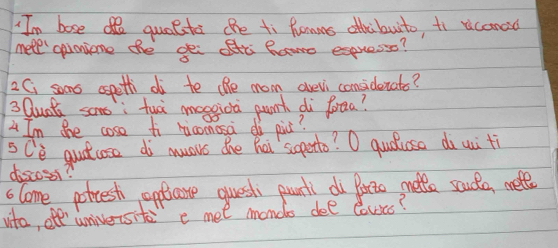 1 In base alle qualità che ti hanno attribuito, ti riconosci
nell'opinione che gli altri hanno espresso?
2 Ci sono aspetti di te che non avevi considerato?
3 Quali sono i tuoi maggiori punti di forza?
4 In che cosa ti riconosci di più?
5 C'è qualcosa di nuovo che hai scoperto? O qualcosa di cui ti
discosti?
6 Come potresti applicare questi punti di forza nella scuola, nella
vita, all'università e nel mondo del lavoro?